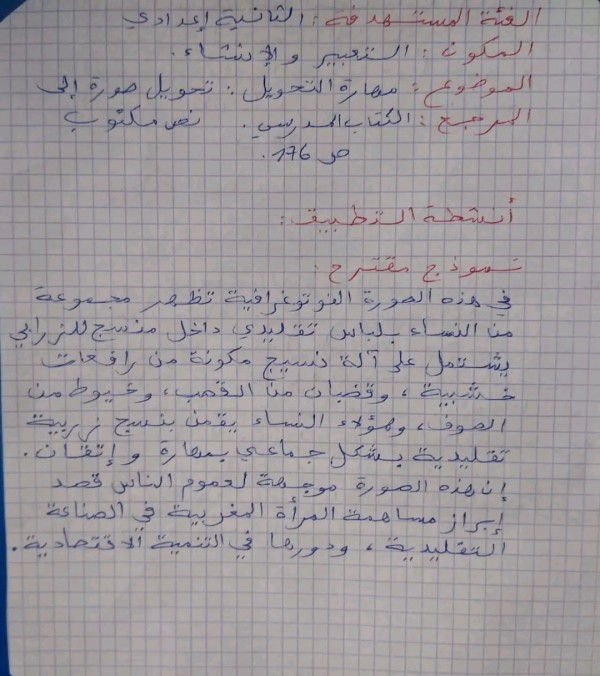 الفئة المستهدفة : الثانية إعدادي
المكون : التعبير والإنشاء.
الموضوع : مهارة التحويل : تحويل صورة إلى
المرجع : الكتاب المدرسي. نص مكتوب
ص 176.
أنشطة التطبيق :
نموذج مقترح :
في هذه الصورة الفوتوغرافية تظهر مجموعة
من النساء بلباس تقليدي داخل منسج للزرابي
يشتمل على آلة نسيج مكونة من رافعات
خشبية ، وقضبان من القصب، وخيوط من
الصوف، وهؤلاء النساء يقمن بنسج زربية
تقليدية بشكل جماعي بمهارة وإتقان.
إن هذه الصورة موجهة لعموم الناس قصد
إبراز مساهمة المرأة المغربية في الصناعة
التقليدية ، ودورها في التنمية الاقتصادية.